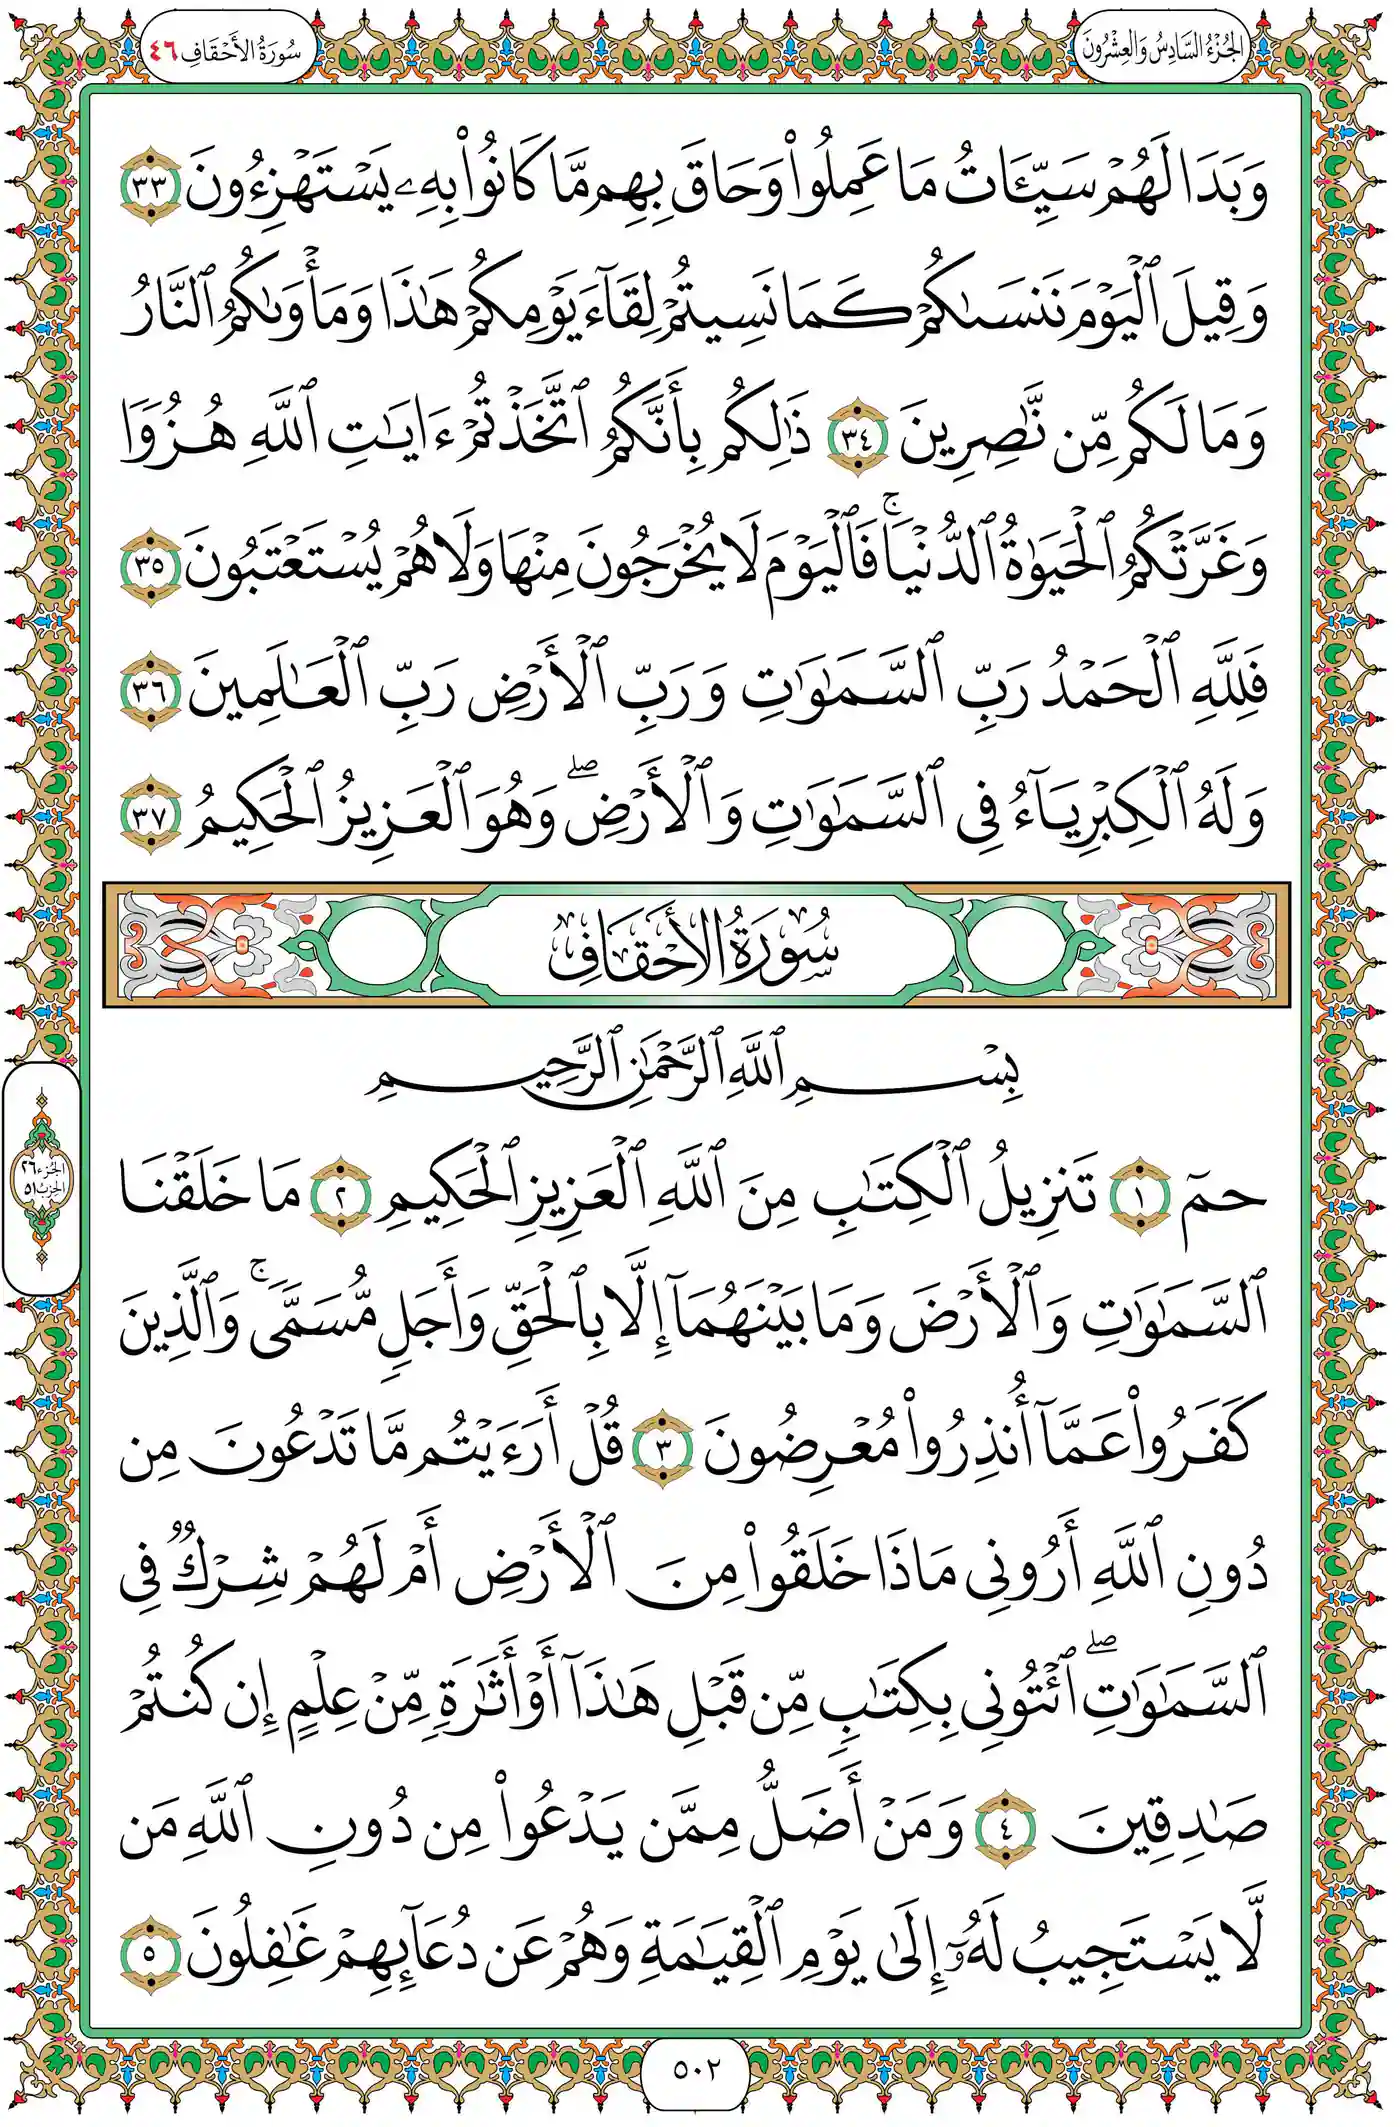 الجُزْءُ السَّادِسُ وَالعِشْرُونَ
سُورَةُ الأَحْقَافِ ٤٦
وَبَدَا لَهُمْ سَيِّـَٔاتُ مَا عَمِلُوا۟ وَحَاقَ بِهِم مَّا كَانُوا۟ بِهِۦ يَسْتَهْزِءُونَ ٣٣
وَقِيلَ ٱلْيَوْمَ نَنسَىٰكُمْ كَمَا نَسِيتُمْ لِقَآءَ يَوْمِكُمْ هَٰذَا وَمَأْوَىٰكُمُ ٱلنَّارُ
وَمَا لَكُم مِّن نَّٰصِرِينَ ٣٤ ذَٰلِكُم بِأَنَّكُمُ ٱتَّخَذْتُمْ ءَايَٰتِ ٱللَّهِ هُزُوًا
وَغَرَّتْكُمُ ٱلْحَيَوٰةُ ٱلدُّنْيَا ۚ فَٱلْيَوْمَ لَا يُخْرَجُونَ مِنْهَا وَلَا هُمْ يُسْتَعْتَبُونَ ٣٥
فَلِلَّهِ ٱلْحَمْدُ رَبِّ ٱلسَّمَٰوَٰتِ وَرَبِّ ٱلْأَرْضِ رَبِّ ٱلْعَٰلَمِينَ ٣٦
وَلَهُ ٱلْكِبْرِيَآءُ فِى ٱلسَّمَٰوَٰتِ وَٱلْأَرْضِ ۖ وَهُوَ ٱلْعَزِيزُ ٱلْحَكِيمُ ٣٧
سُورَةُ الأَحْقَافِ
بِسْمِ ٱللَّهِ ٱلرَّحْمَٰنِ ٱلرَّحِيمِ
حمٓ ١ تَنزِيلُ ٱلْكِتَٰبِ مِنَ ٱللَّهِ ٱلْعَزِيزِ ٱلْحَكِيمِ ٢ مَا خَلَقْنَا
ٱلسَّمَٰوَٰتِ وَٱلْأَرْضَ وَمَا بَيْنَهُمَآ إِلَّا بِٱلْحَقِّ وَأَجَلٍ مُّسَمًّى ۚ وَٱلَّذِينَ
كَفَرُوا۟ عَمَّآ أُنذِرُوا۟ مُعْرِضُونَ ٣ قُلْ أَرَءَيْتُم مَّا تَدْعُونَ مِن
دُونِ ٱللَّهِ أَرُونِى مَاذَا خَلَقُوا۟ مِنَ ٱلْأَرْضِ أَمْ لَهُمْ شِرْكٌ فِى
ٱلسَّمَٰوَٰتِ ۖ ٱئْتُونِى بِكِتَٰبٍ مِّن قَبْلِ هَٰذَآ أَوْ أَثَٰرَةٍ مِّنْ عِلْمٍ إِن كُنتُمْ
صَٰدِقِينَ ٤ وَمَنْ أَضَلُّ مِمَّن يَدْعُوا۟ مِن دُونِ ٱللَّهِ مَن
لَّا يَسْتَجِيبُ لَهُۥٓ إِلَىٰ يَوْمِ ٱلْقِيَٰمَةِ وَهُمْ عَن دُعَآئِهِمْ غَٰفِلُونَ ٥
الجُزء ٢٦
الحِزبُ ٥١
٥٠٢